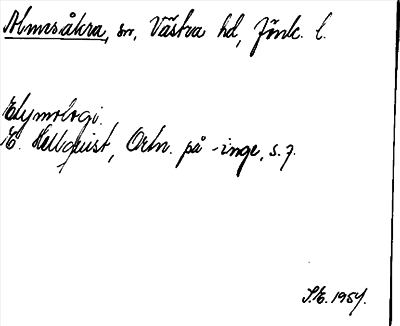 Almesåkra, sn, Västra hd, Jönk. l.
Etymologi.
E. Hellquist, Ortn. på -inge, s. 7.
S.E. 1954.